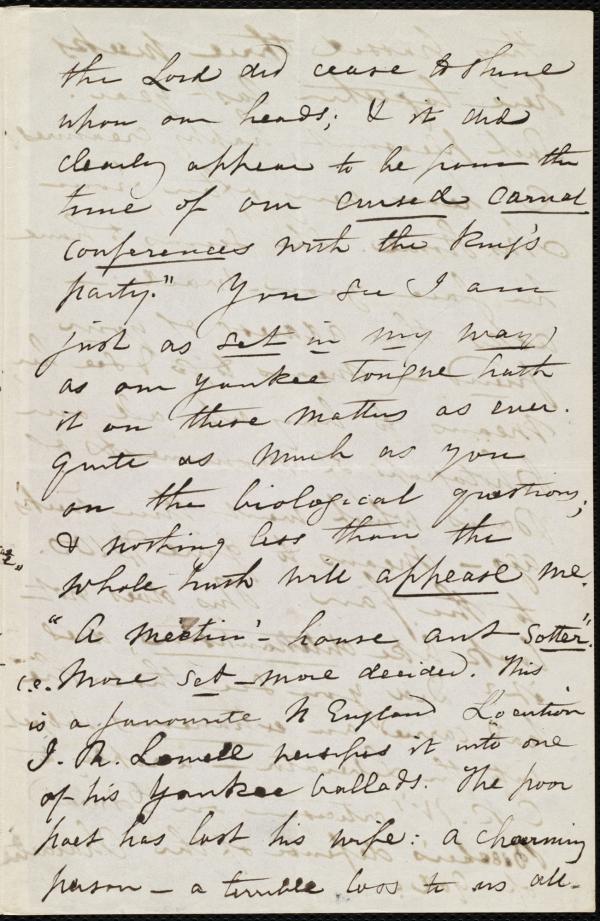 the Lord did cease to shine
upon our heads; & it did
clearly appear to be from the
time of our cursed carnal
conferences with the King's
party." You see I am
just as set in my way,
as our yankee tongue hath
it on these matters as ever.
Quite as much as you
on the biological questions,
& nothing less than the
whole truth will appease me.
"A meetin'-house ant sotter".
i.e. More set - more decided. This
is a favourite N England Locution
J. R. Lowell versifies it into one
of his Yankee ballads. The poor
poet has lost his wife: a charming
person - a terrible loss to us all-